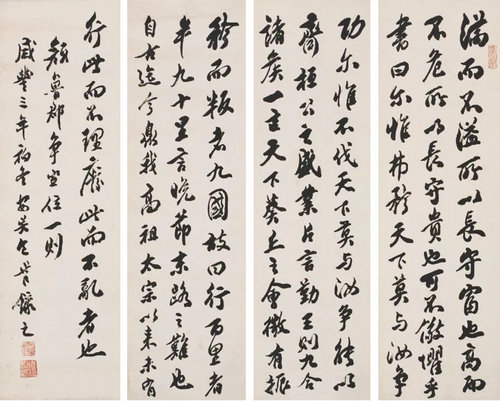 滿而不溢所以長守富也高而
不危所以長守貴也可不儆懼乎
書曰尔惟弗矜天下莫與汝爭
功尔惟不伐天下莫與汝爭能以
齊桓公之盛業片言勤王則九合
諸侯一匡天下葵丘之會微有振
矜而叛者九國故曰行百里者
半九十里言晚節末路之難也
自古迄今暨我高祖太宗以來未有
行此而不理廢此而不亂者也
顏魯郡爭坐位一則
咸豐三年